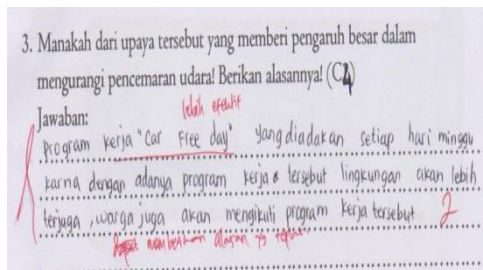 3. Manakah dari upaya tersebut yang memberi pengaruh besar dalam
mengurangi pencemaran udara! Berikan alasannya! (C4)
Jawaban:
lebih efektif
Program kerja "Car Free day" yang diadakan setiap hari minggu
karna dengan adanya program kerja tersebut lingkungan akan lebih
terjaga, warga juga akan mengikuti program kerja tersebut 2
memberikan alasan yg tepat